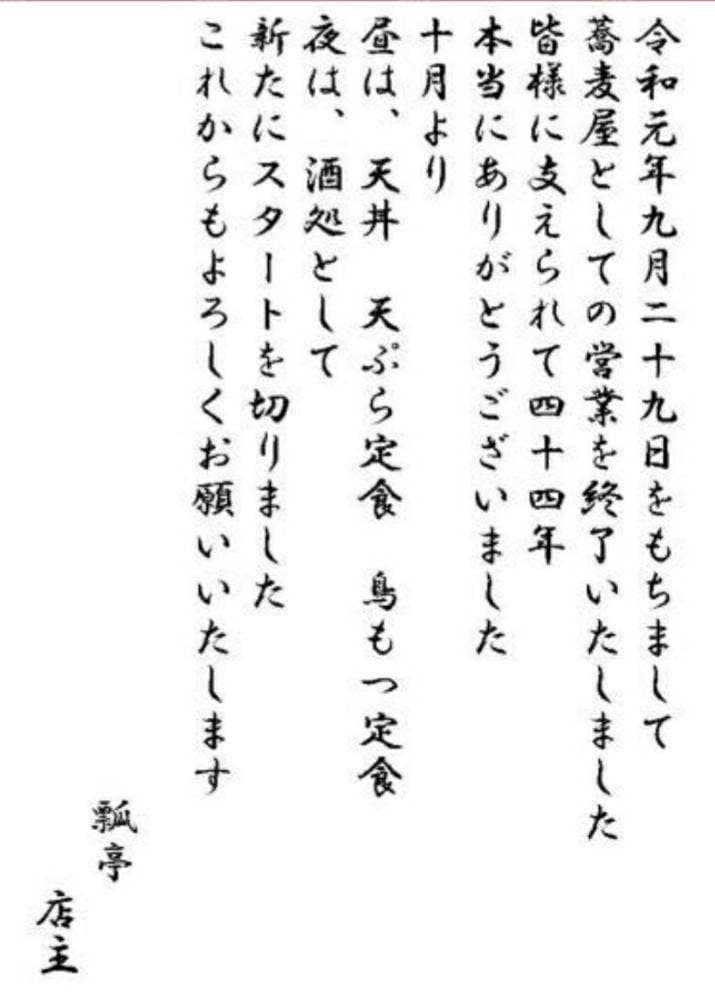 令和元年九月二十九日をもちまして
蕎麦屋としての営業を終了いたしました
皆様に支えられて四十四年
本当にありがとうございました
十月より
昼は、　天丼　天ぷら定食　鳥もつ定食
夜は、酒処として
新たにスタートを切りました
これからもよろしくお願いいたします
瓢亭
店主